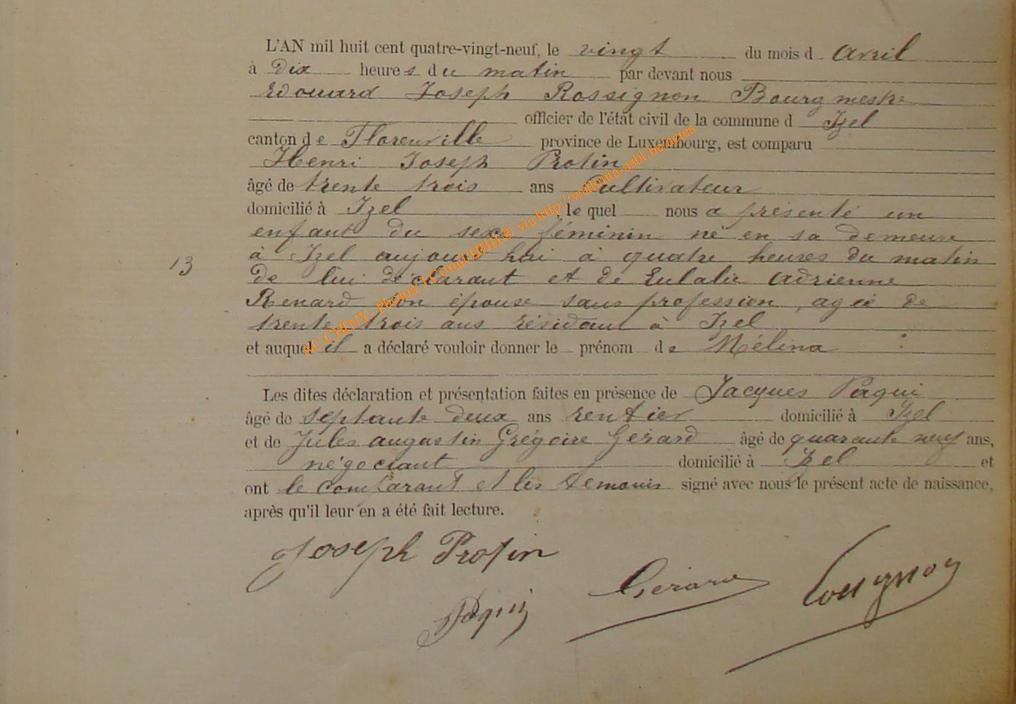 L'AN mil huit cent quatre-vingt-neuf, le vingt du mois d Avril
à Dix heures du matin par devant nous
Edouard Joseph Rossignon Bourgmestre
officier de l'état civil de la commune d Izel
canton de Florenville province de Luxembourg, est comparu
Henri Joseph Protin
âgé de trente trois ans Cultivateur
domicilié à Izel , le quel nous a présenté un
enfant du sexe féminin né en sa demeure
13 à Izel aujourd'hui à quatre heures du matin
de lui déclarant et de Eulalie Adrienne
Renard son épouse sans profession, agée de
trente trois ans résidant à Izel
et auquel il a déclaré vouloir donner le prénom de Mélina
Les dites déclaration et présentation faites en présence de Jacques Paquij
âgé de septante deux ans rentier domicilié à Izel
et de Jules augustin Grégoire Gérard âgé de quarante neuf ans,
négociant domicilié à Izel et
ont le comparant et les témouis signé avec nous le présent acte de naissance,
après qu'il leur en a été fait lecture.
Joseph Protin
Paquij Gérard